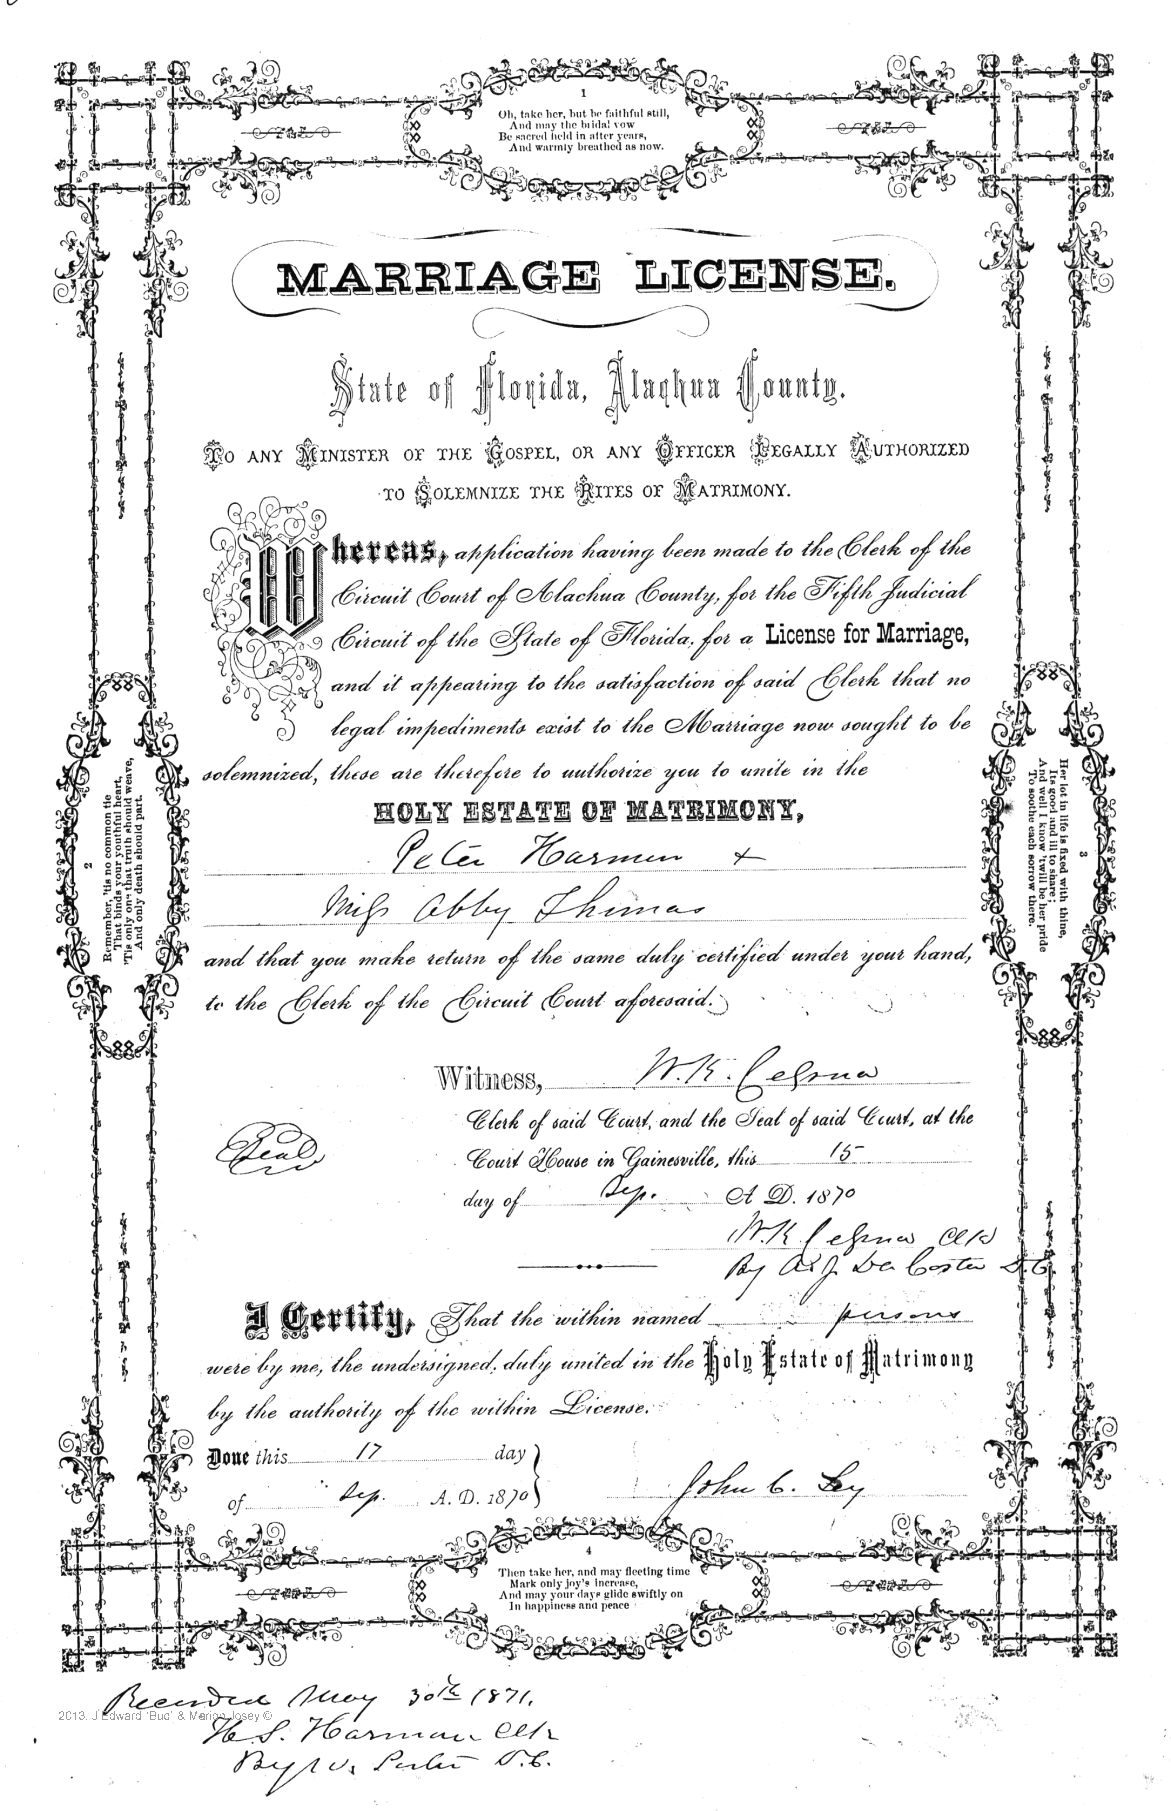 1
Oh, take her, but be faithful still,
And may the bridal vow
Be sacred held in after years,
And warmly breathed as now.
MARRIAGE LICENSE.
State of Florida, Alachua County.
TO ANY MINISTER OF THE GOSPEL, OR ANY OFFICER LEGALLY AUTHORIZED
TO SOLEMNIZE THE RITES OF MATRIMONY.
Whereas, application having been made to the Clerk of the
Circuit Court of Alachua County, for the Fifth Judicial
Circuit of the State of Florida, for a License for Marriage,
and it appearing to the satisfaction of said Clerk that no
legal impediments exist to the Marriage now sought to be
solemnized, these are therefore to authorize you to unite in the
HOLY ESTATE OF MATRIMONY,
Peter Harmon +
Miss Abby Thomas
and that you make return of the same duly certified under your hand,
to the Clerk of the Circuit Court aforesaid.
2
Remember, 'tis no common tie
That binds your youthful heart,
'Tis only one that truth should weave,
And only death should part.
3
Her lot in life is fixed with thine,
Its good and ill to share;
And well I know 'twill be her pride
To soothe each sorrow there.
Witness, W. K. Cessna
Clerk of said Court, and the Seal of said Court, at the
Seal
Court House in Gainesville, this 15
day of Sep. A D. 1870
W. K. Cessna Clk
By A. J. Da Costa D.C.
I Certify, That the within named persons
were by me, the undersigned, duly united in the Holy Estate of Matrimony
by the authority of the within License.
Done this 17 day
of Sep. A. D. 1870
John C. Ley
4
Then take her, and may fleeting time
Mark only joy's increase,
And may your days glide swiftly on
In happiness and peace
Recorded May 30th 1871.
2013. J Edward 'Buc' & Marion Josey ©
H. S. Harmon Clk
By Porter D.C.